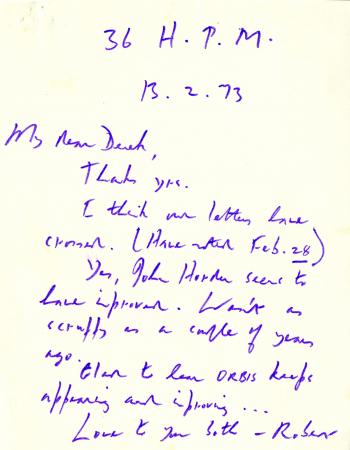 36 H. P. M.
13. 2. 73
My dear Derek,
Thanks yrs.
I think our letters have
crossed. (Have noted Feb. 28)
Yes, John Horder seems to
have improved. Wasn't as
scruffy as a couple of years
ago.
Glad to hear ORBIS keeps
appearing and improving ...
Love to you both - Robert